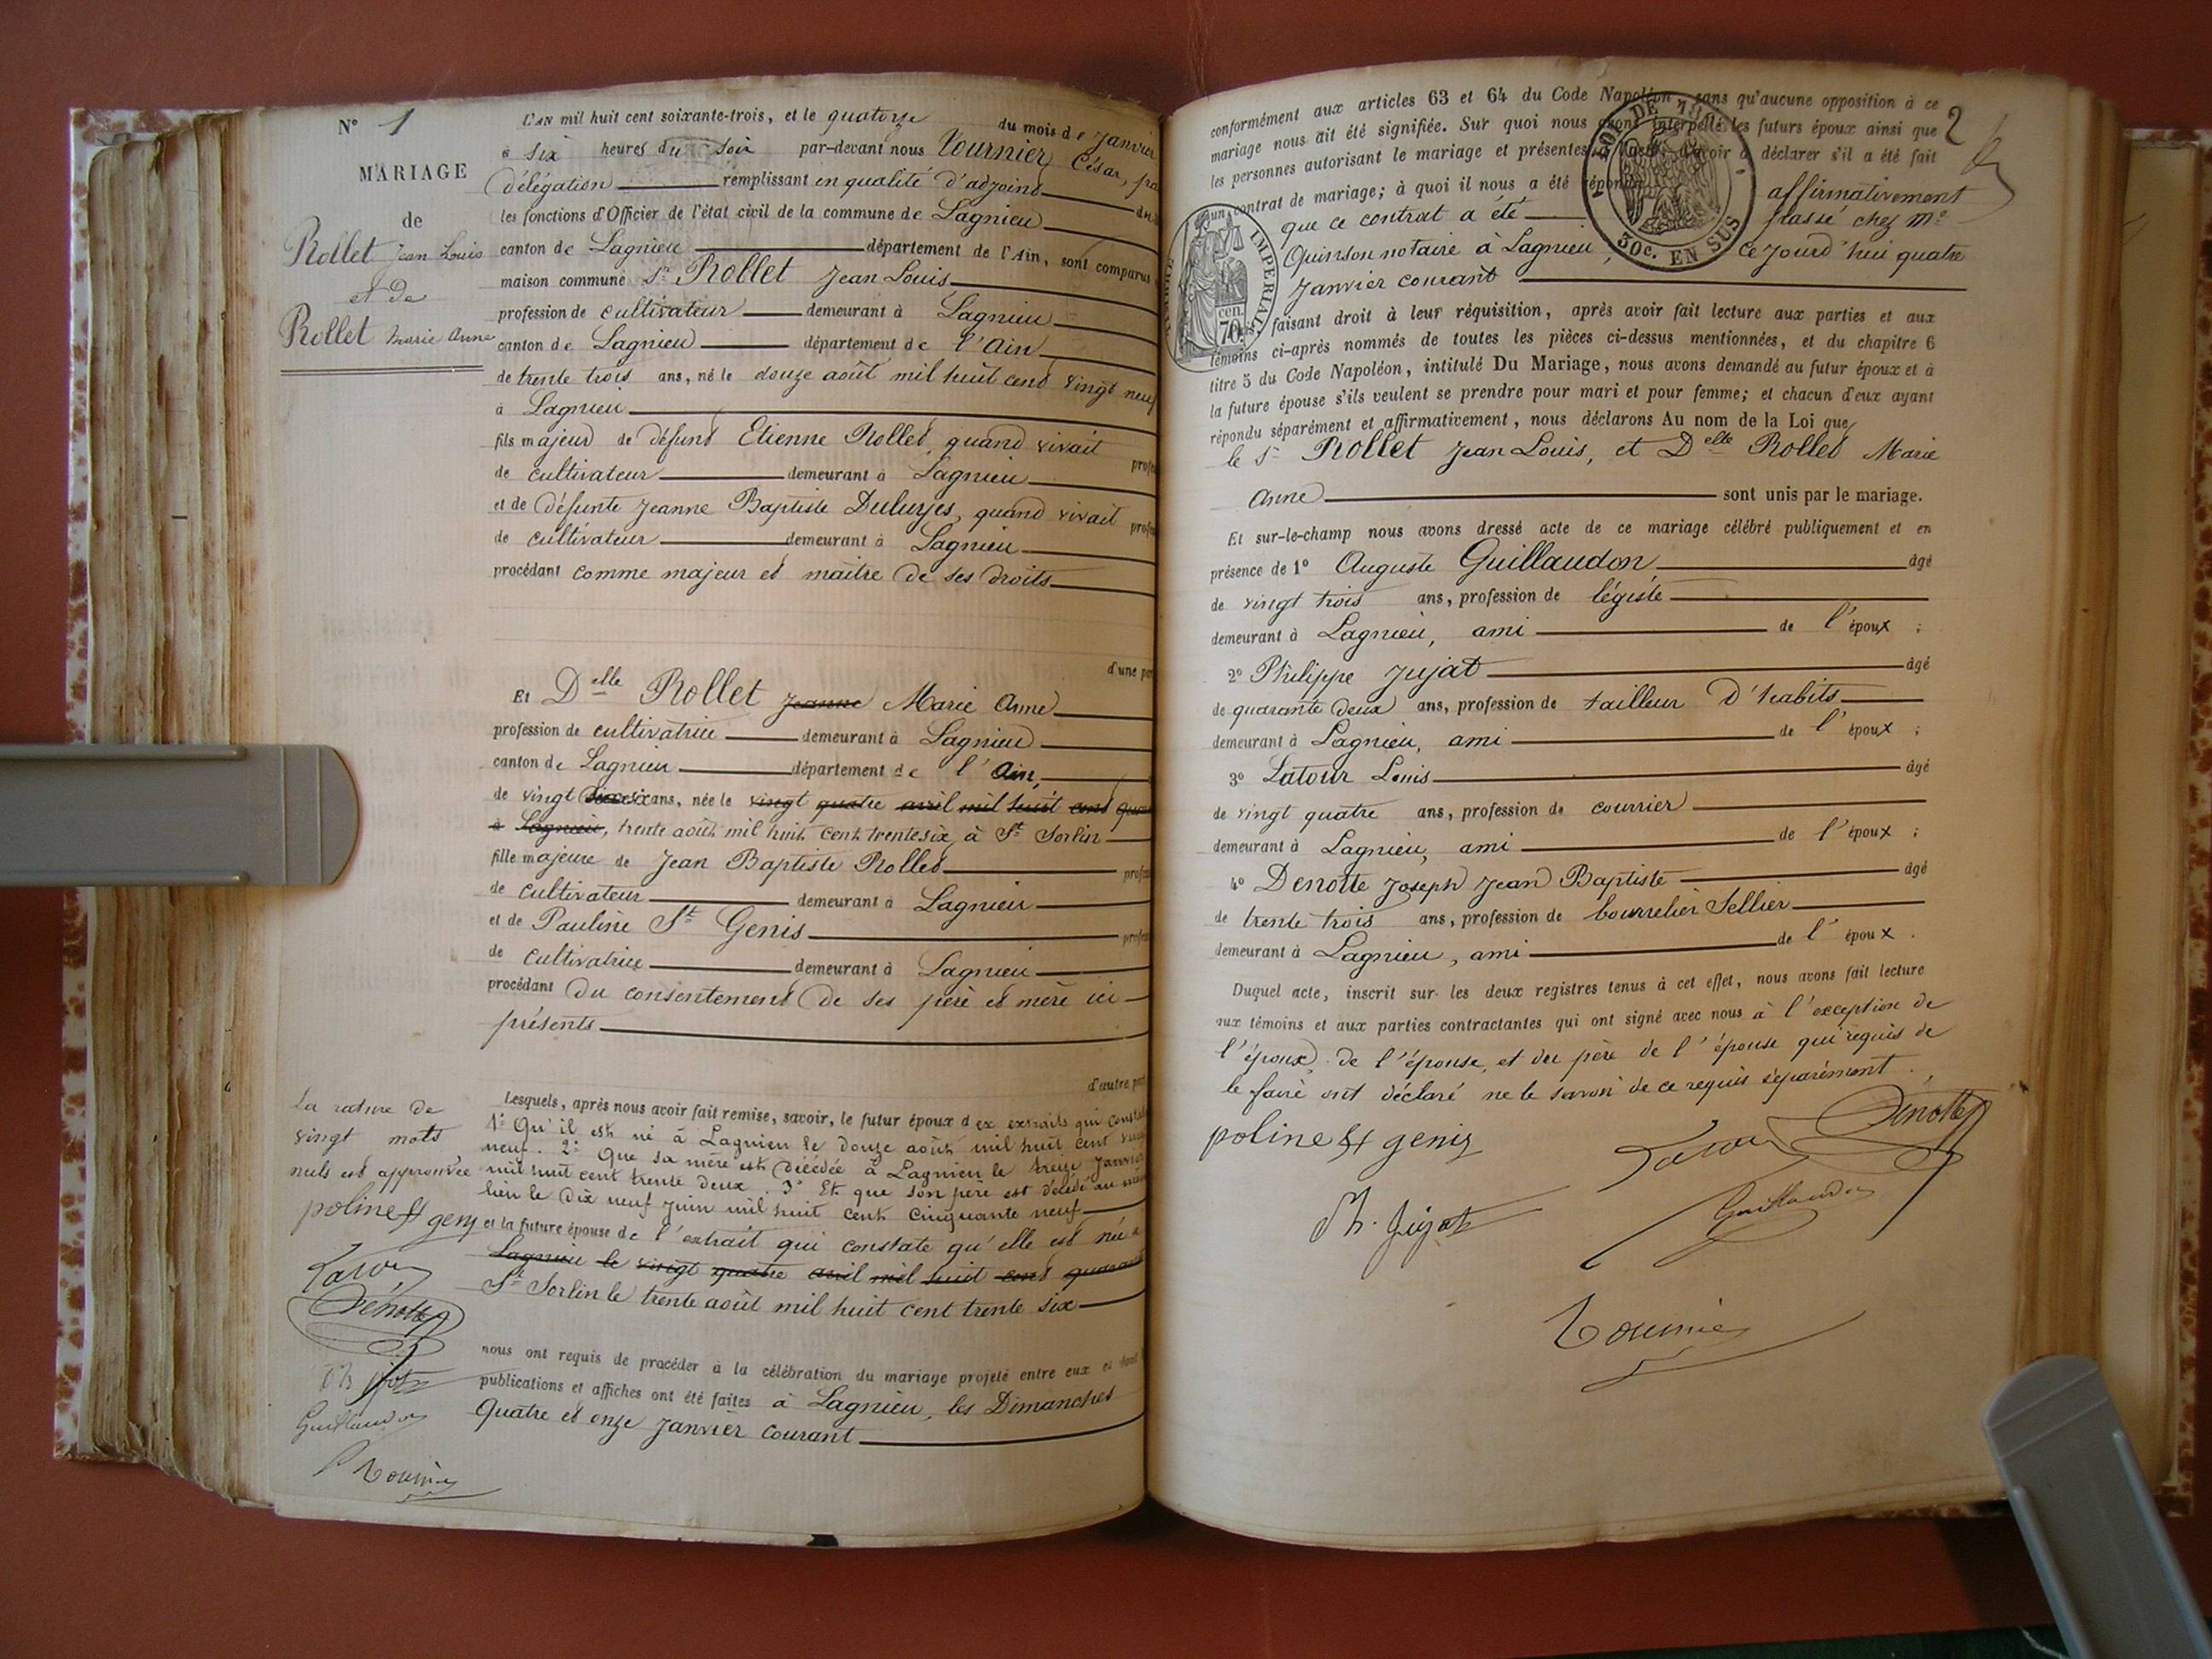 N° 1
MARIAGE
de
Rollet Jean Louis
et de
Rollet Marie Anne
L'AN mil huit cent soixante-trois, et le quatorze du mois de Janvier
à six heures du soir par-devant nous Tournier César, pa
délégation remplissant en qualité d'adjoint
les fonctions d'Officier de l'état civil de la commune de Lagnieu
canton de Lagnieu département de l'Ain, sont comparus
maison commune Sr Rollet Jean Louis
profession de cultivateur demeurant à Lagnieu
canton de Lagnieu département de l'Ain
de trente trois ans, né le douze août mil huit cent vingt neuf
à Lagnieu
fils majeur de défunt Etienne Rollet, quand vivait profes
de cultivateur demeurant à Lagnieu
et de défunte Jeanne Baptiste quand vivait profes
de cultivateur demeurant à Lagnieu
procédant comme majeur et maître de ses droits
d'une par
Et Delle Rollet Jeanne Marie Anne
profession de cultivatrice demeurant à Lagnieu
canton de Lagnieu département de l'Ain,
de vingt six ans, née le vingt quatre avril mil huit cent quar
à Lagnieu, trente août mil huit cent trente six, à St Sorlin
fille majeure de Jean Baptiste Rollet profes
de cultivateur demeurant à Lagnieu
et de Pauline St Genis profes
de cultivatrice demeurant à Lagnieu
procédant du consentement de ses père et mère ici
présents
d'autre part
Lesquels, après nous avoir fait remise, savoir, le futur époux des extraits qui constate
1° Qu'il est né à Lagnieu le douze août mil huit cent vingt
neuf. 2° Que sa mère est décédée à Lagnieu le treize Janvier
mil huit cent trente deux. 3° Et que son père est décédé au même
lieu le dix neuf Juin mil huit cent cinquante neuf
et la future épouse de l'extrait qui constate qu'elle est née à
Lagnieu le vingt quatre avril mil huit cent quarante
St Sorlin le trente août mil huit cent trente six
nous ont requis de procéder à la célébration du mariage projeté entre eux et dont
publications et affiches ont été faites à Lagnieu, les Dimanches
Quatre et onze Janvier courant
La rature de
vingt mots
nuls est approuvée
poline st geny
Latour
Denotte
Ph Jujat
Guillaudon
Tournier
2
conformément aux articles 63 et 64 du Code Napoléon, sans qu'aucune opposition à ce
mariage nous ait été signifiée. Sur quoi nous avons interpellé les futurs époux ainsi que
les personnes autorisant le mariage et présentes à l'acte, d'avoir à déclarer s'il a été fait
un contrat de mariage; à quoi il nous a été répondu affirmativement
que ce contrat a été passé chez Me
Quinson notaire à Lagnieu, ce jourd'hui quatre
Janvier courant
faisant droit à leur réquisition, après avoir fait lecture aux parties et aux
témoins ci-après nommés de toutes les pièces ci-dessus mentionnées, et du chapitre 6
titre 5 du Code Napoléon, intitulé Du Mariage, nous avons demandé au futur époux et à
la future épouse s'ils veulent se prendre pour mari et pour femme; et chacun d'eux ayant
répondu séparément et affirmativement, nous déclarons Au nom de la Loi que
le Sr Rollet Jean Louis, et Delle Rollet Marie
Anne sont unis par le mariage.
Et sur-le-champ nous avons dressé acte de ce mariage célébré publiquement et en
présence de 1° Auguste Guillaudon, âgé
de vingt trois ans, profession de légiste
demeurant à Lagnieu, ami de l'époux ;
2° Philippe Jujat âgé
de quarante deux ans, profession de tailleur d'habits
demeurant à Lagnieu, ami de l'époux ;
3° Latour Louis âgé
de vingt quatre ans, profession de courrier
demeurant à Lagnieu, ami de l'époux ;
4° Denotte Joseph Jean Baptiste âgé
de trente trois ans, profession de bourrelier Sellier
demeurant à Lagnieu, ami de l'époux.
Duquel acte, inscrit sur les deux registres tenus à cet effet, nous avons fait lecture
aux témoins et aux parties contractantes qui ont signé avec nous à l'exception de
l'époux, de l'épouse, et du père de l'épouse qui requis de
le faire ont déclaré ne le savoir de ce requis séparément.
poline st genis
Latour
Denotte
Ph. Jujat
Guillaudon
Tournier
LOI DE 18
30c. EN SUS
TIMBRE IMPERIAL
70 cen.